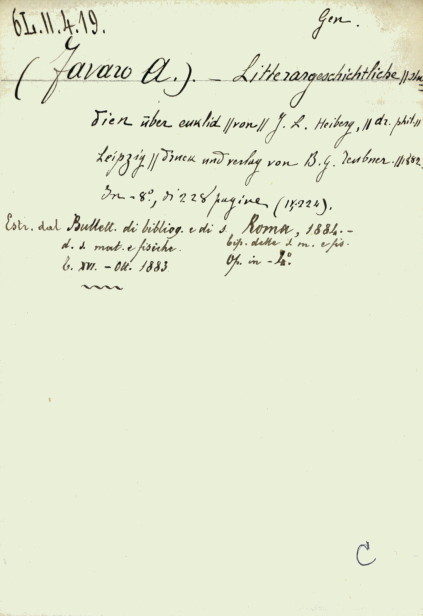 6L.11.4.19.
Gen.
(Favaro A.). — Litterargeschichtliche || stu=
dien über euklid || von || J. L. Heiberg, || dr. phil. ||
Leipzig || druck und verlag von B. G. Teubner. || 1882.
In-8°, di 228 pagine (15.224).
Estr. dal Bullett. di bibliog. e di s.
d. s. mat. e fisiche.
t. XVI. - Ott. 1883.
Roma, 1884.-
tip. delle s. m. e fis.
Op. in -4°
C